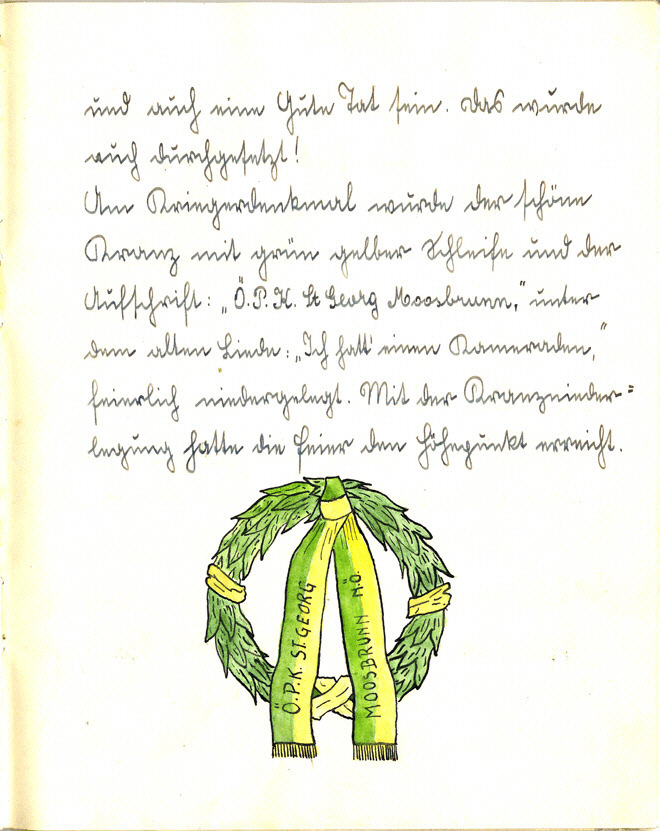 und auch eine Gute Tat sein. Das wurde
auch durchgesetzt!
Am Kriegerdenkmal wurde der schöne
Kranz mit grün gelber Schleife und der
Aufschrift: „Ö.P.K. St Georg Moosbrunn,“ unter
dem alten Liede: „Ich hatt' einen Kameraden,“
feierlich niedergelegt. Mit der Kranznieder=
legung hatte die Feier den Höhepunkt erreicht.
Ö.P.K. ST. GEORG
MOOSBRUNN N.Ö.